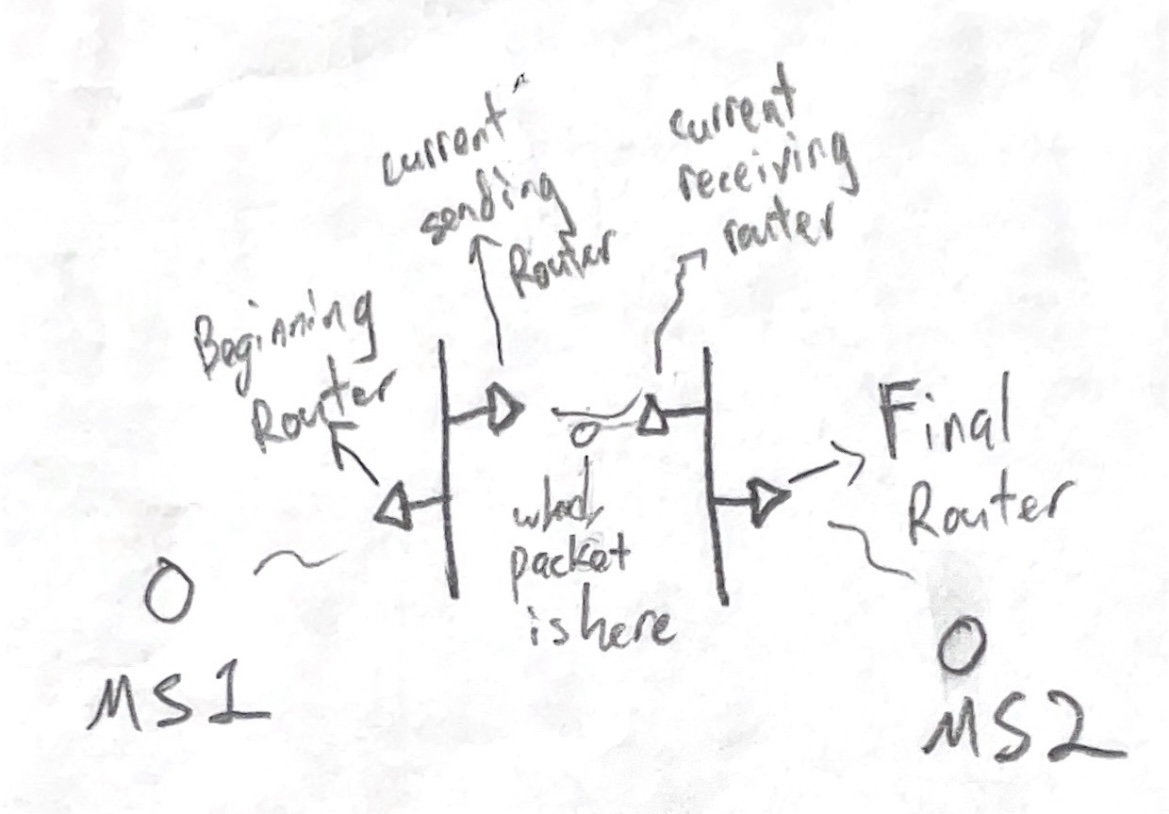 current
sending
Router
current
receiving
router
Beginning
Router
Final
Router
packet
is here
MS1
MS2